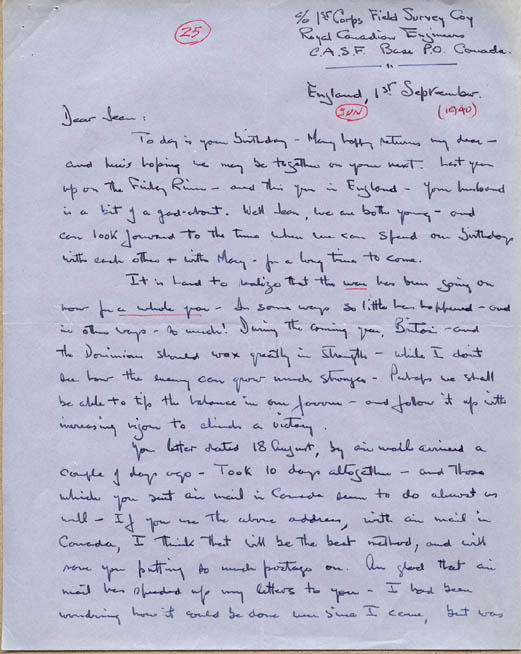 25
c/o 1st Corps Field Survey Coy
Royal Canadian Engineers
C.A.S.F. Base P.O. Canada.
England, 1st September.
SUN
(1940)
Dear Jean:
Today is your birthday - Many happy returns my dear -
and here's hoping we may be together on your next. Last year
up on the Finlay River - and this year in England - your husband
is a bit of a gad-about. Well Jean, we are both young - and
can look forward to the time when we can spend our birthdays
with each other + with Mary - for a long time to come.
It is hard to realize that the war has been going on
now for a whole year - In some ways so little has happened - and
in other ways - so much! During the coming year, Britain - and
the Dominions should wax greatly in strength - while I don't
see how the enemy can grow much stronger - Perhaps we shall
be able to tip the balance in our favour - and follow it up with
increasing vigour to clinch a victory.
Your letter dated 18 August, by air mail arrived a
couple of days ago - Took 10 days altogether - and those
which you sent air mail in Canada seem to do almost as
well - If you use the above address, with air mail in
Canada, I think that will be the best method, and will
save you putting so much postage on. Am glad that air
mail has speeded up my letters to you - I had been
wondring how it could be done ever since I came, but was